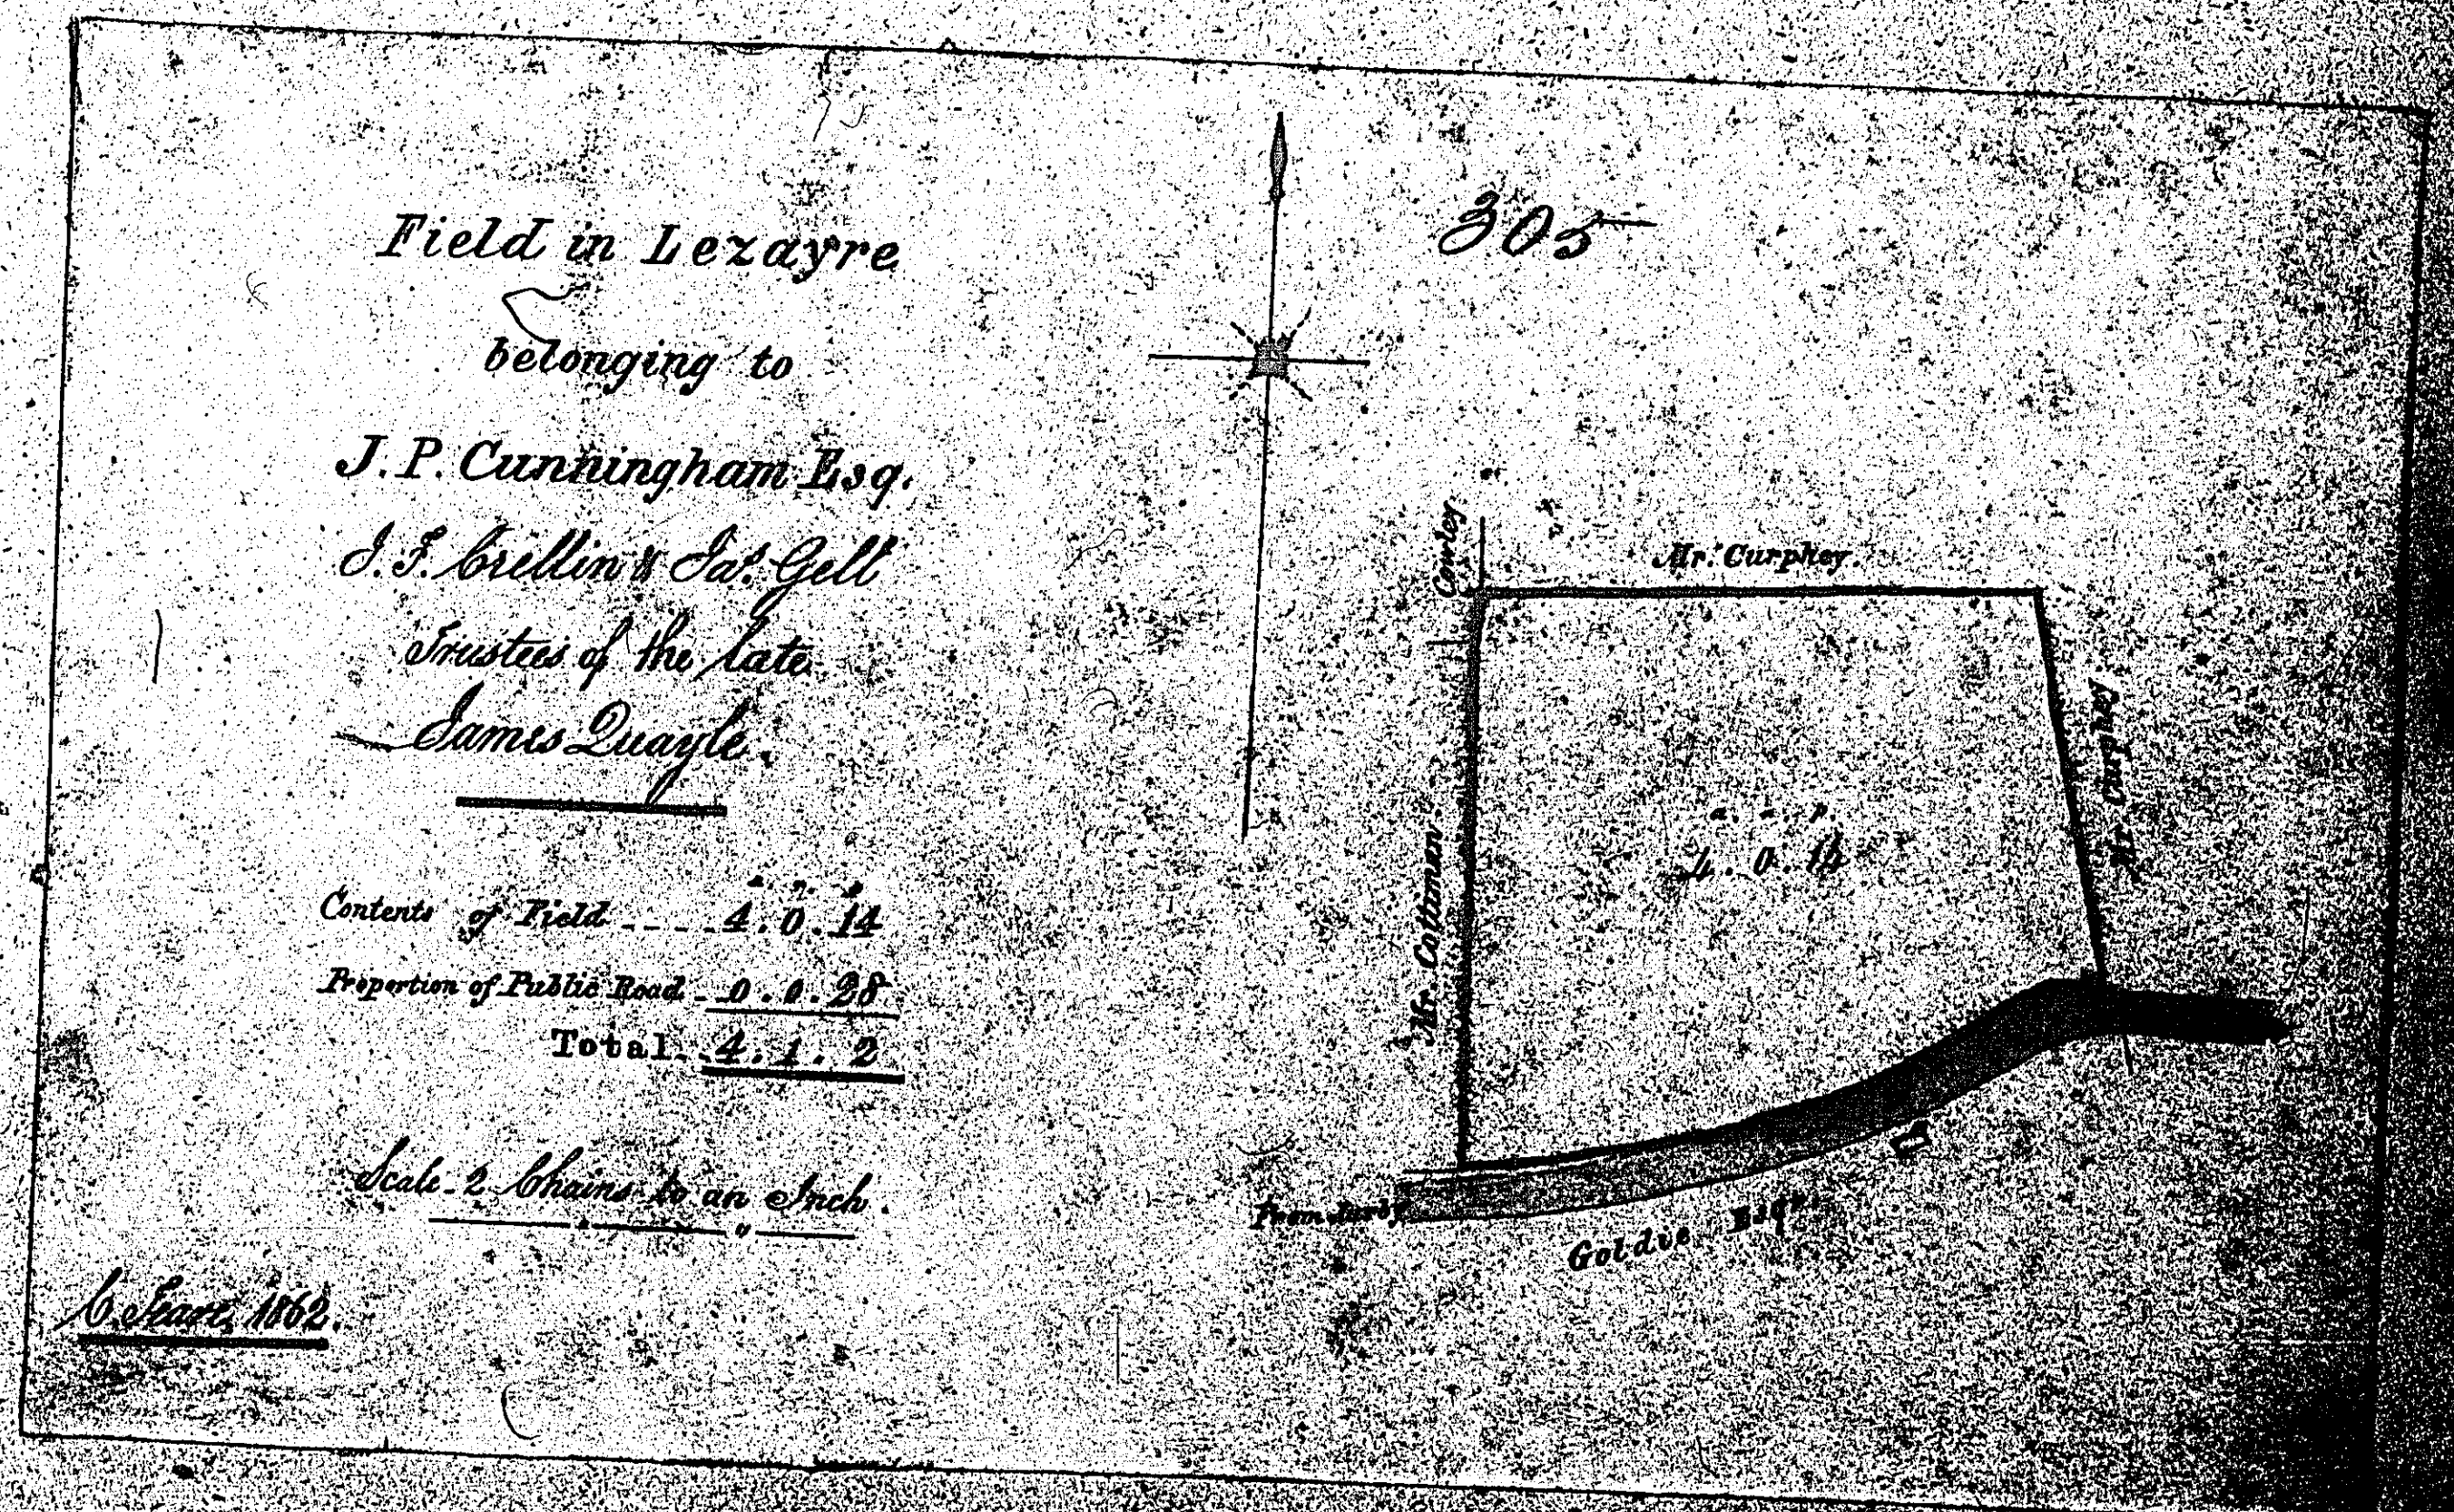 Field in Lezayre
belonging to
J. P. Cunningham Esq.
J. F. Crellin & Jas. Gell
Trustees of the late
James Quayle.
a. r. p
Contents of Field ---- 4. 0. 14
Proportion of Public Road -- 0. 0. 28
Total -- 4. 1. 2
Scale - 2 Chains to an Inch.
1862.
305
Cowley
Mr. Curphey.
Mr. Curphey
Mr. Cothman
a. r. p.
4. 0. 14
From Jurby
Goldie Esqr.